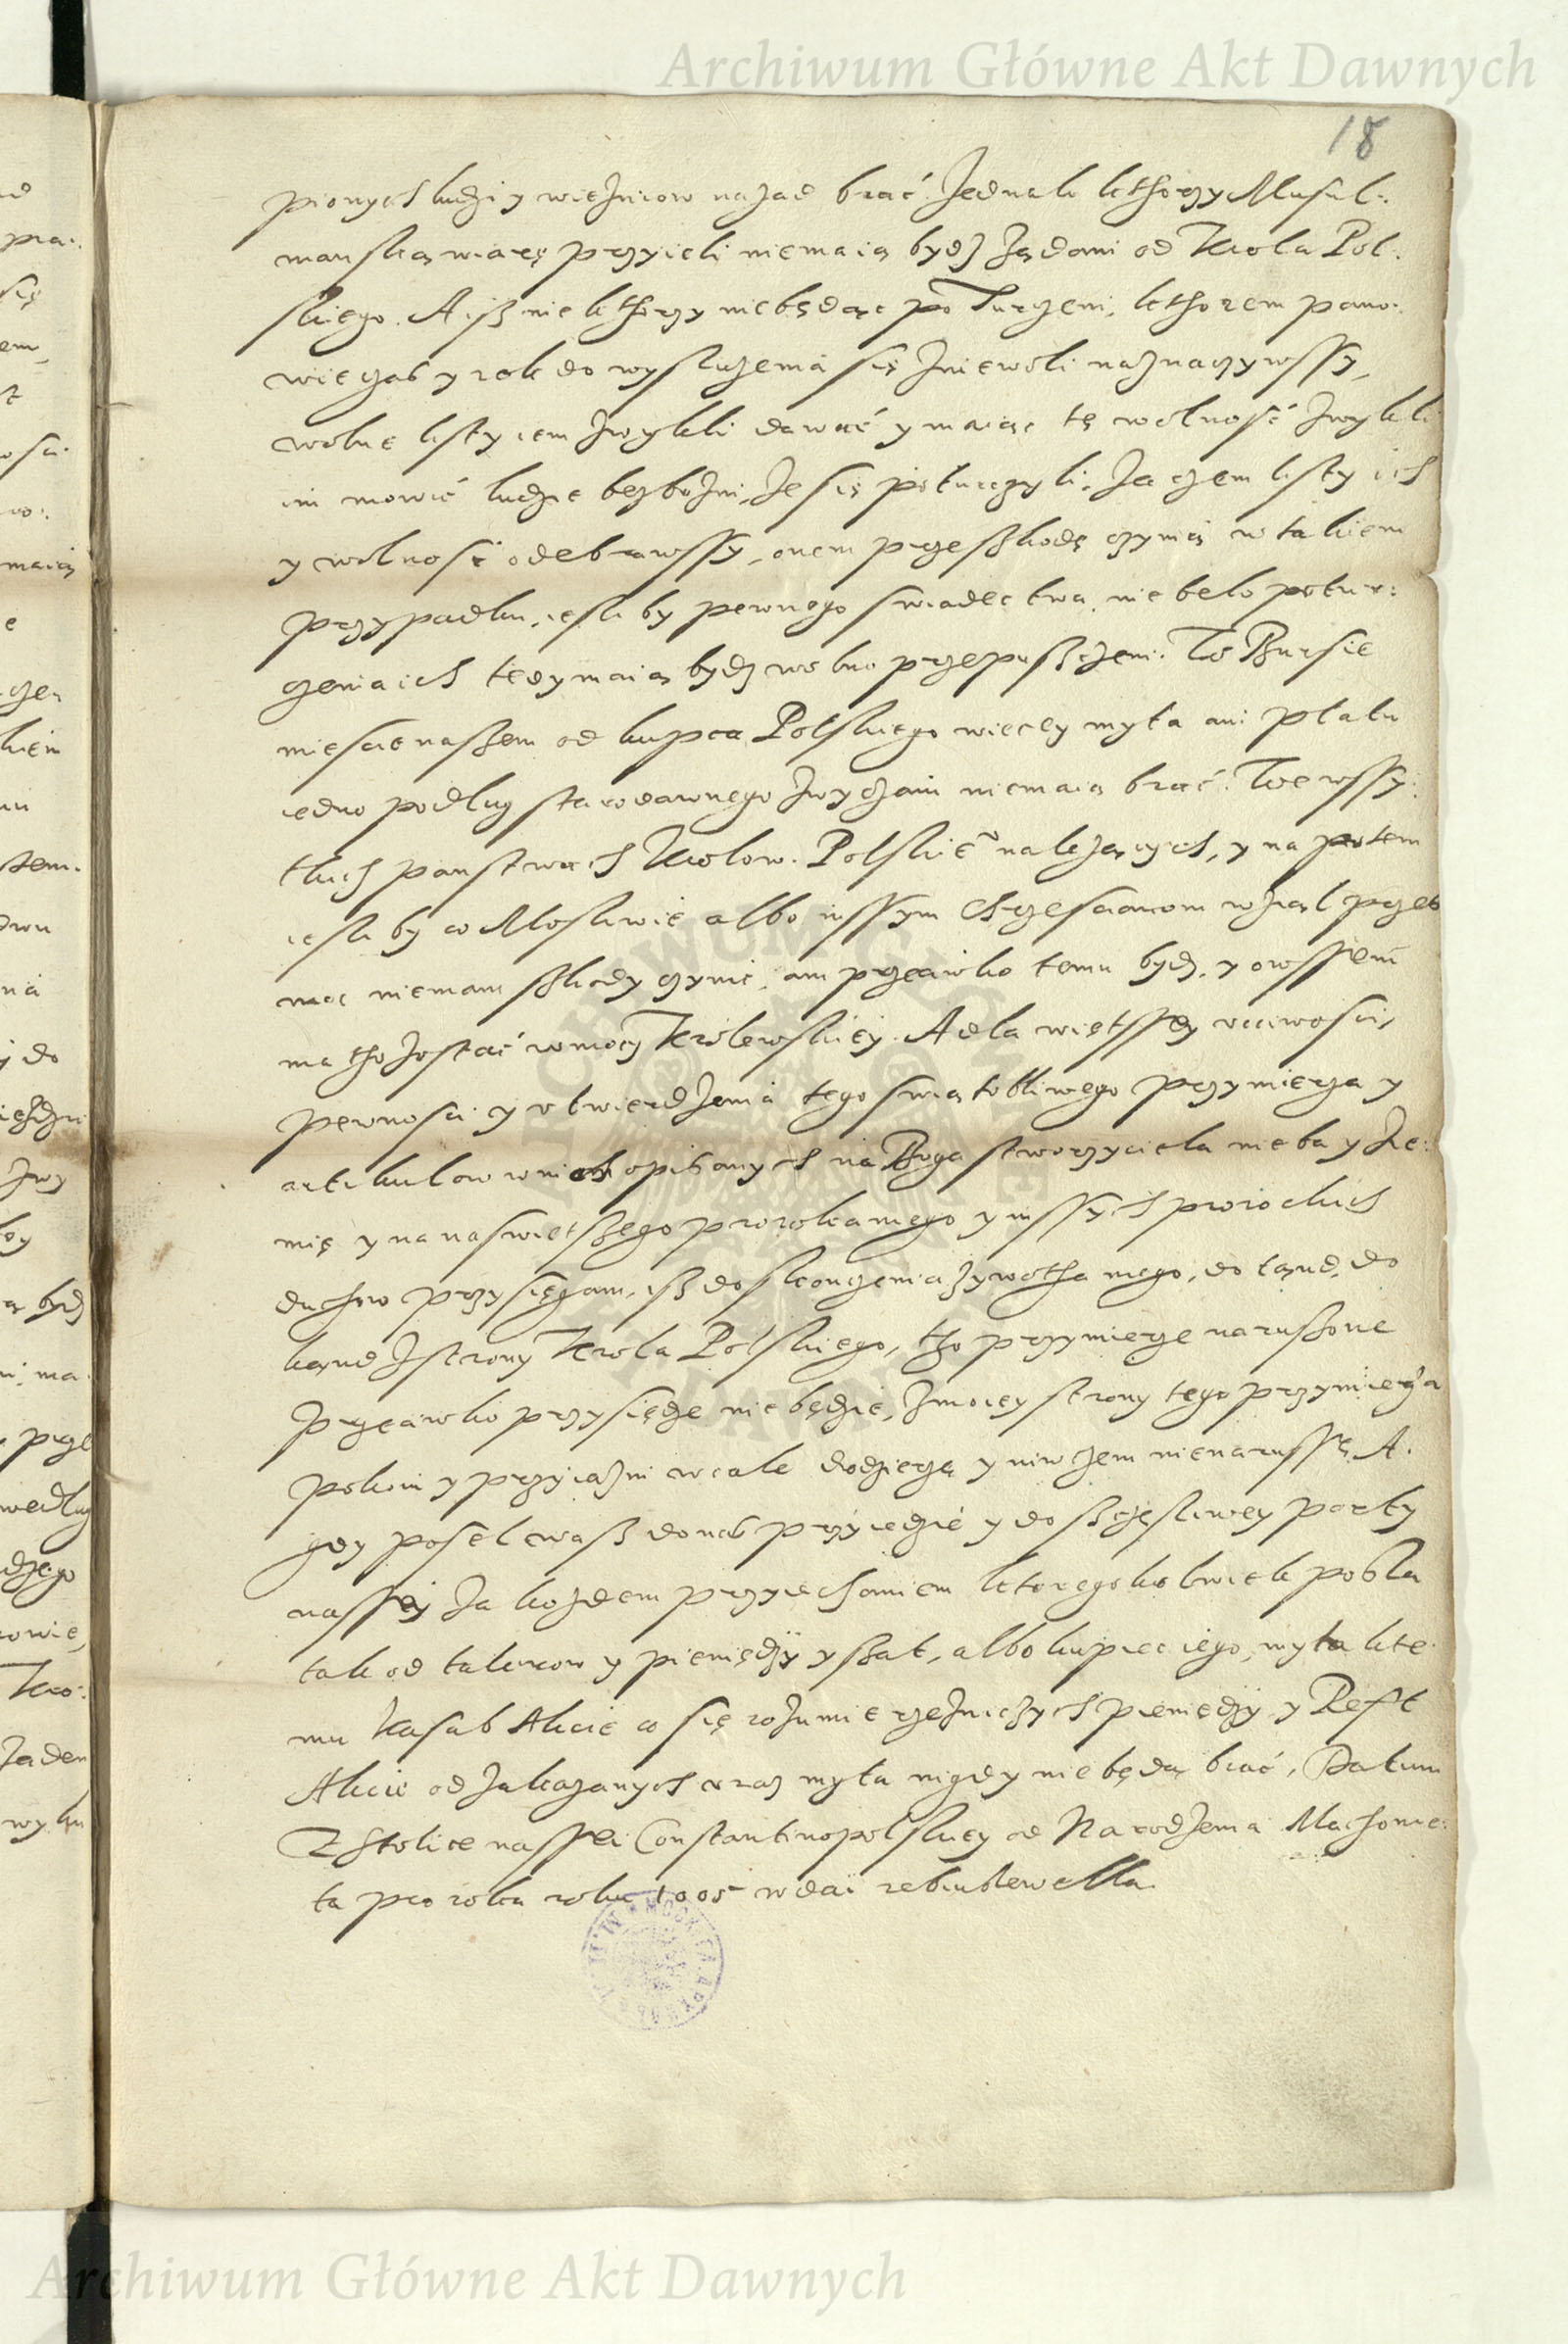 Archiwum Główne Akt Dawnych
18
pionych ludzi y więzniow nazad brać. Jednak kthorzy Musul:
manską wiarę przyieli niemaią bydz żądani od Krola Pol:
skiego. A isz nie kthorzy niebędąc poturczeni, kthorem pano:
wie czas y rok do wysluzenia się zniewoli naznaczywssy,
wolne listy iem zwykli dawać y maiąc tę wolnosć zwykli
im mowić ludzie bezbozni, ze się poturczyli, za czem listy ich
y wolnosć odebrawssy, onem przeszkodę czynią w takiem
przypadku, iesli by pewnego swiadectwa nie belo potur:
czenia ich tedy maią bydz wolno przepuszczeni. W Bursie
miescie naszem od kupca Polskiego więcey myta ani platu
iedno podlug starodawnego zwyczaiu niemaią brać. We wssy:
tkich panstwach Krolow. Polskie nalezących, y na potem
iesli by co Moskwie albo inssym Chrzescianom wziąl przes
moc niemam szkody czynić, ani przeciwko temu bydz, y owssem
ma tho zostać w mocy Krolewskiey. A dla więtssey ucciwosci,
pewnosci y utwierdzenia tego swiątobliwego przymierza y
artikulow wnich opisanych na Boga stworzyciela nieba y zie:
mię y na naswiętszego proroka mego y inssych prorockich
duchow przysięgam, isz do skonczenia zywotha mego, do tąnd, do
kąnd z strony Krola Polskiego, tho przymierze naruszone
przeciwko przysiędze nie będzie, z moiey strony tego przymierza
pokoiu y przyiazni wcale dodzierzę y niwczem nienarussę. A.
gdy posel wasz do nas przyiedzie y do szczęsliwey porty
nassey za kozdem przyiechaniem ktoregokolwiek posla
tak od talerow y pieniędzy y szat, albo kupiec iego, myta kte:
mu Kasab Akcie co się rozumie rzezniczych pieniędzy y Reft
Akcie od zakazanych uraz myta nigdy nie będą brać. Datum
Z Stolice nassei Constantinopolskiey od Narodzenia Machome:
ta proroka roku 1005 w dai rebiublewella.
Archiwum Główne Akt Dawnych